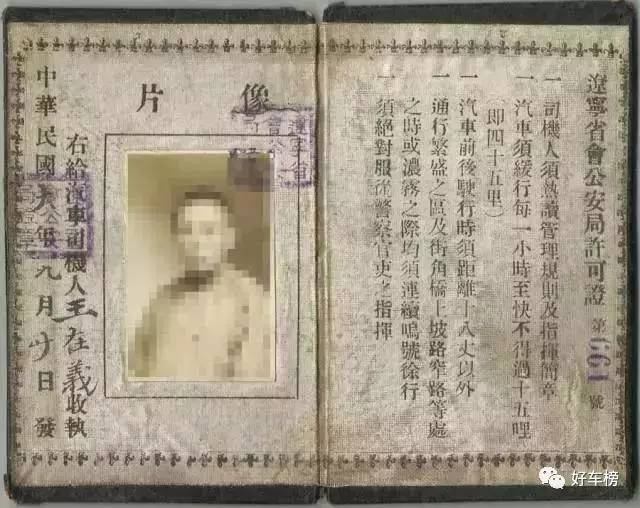 遼寧省會公安局許可證 第661號
一 司機人須熟讀管理規則及指揮簡章
一 汽車須緩行每一小時至快不得過十五哩
(即四十五里)
一 汽車前後駛行時須距離十八丈以外
一 通行繁盛之區及街角橋上坡路窄路等處
之時或濃霧之際均須連續鳴號徐行
一 須絕對服從警察官吏之指揮
像片
右給汽車司機人王在義收執
中華民國 年九月 日發
好车榜